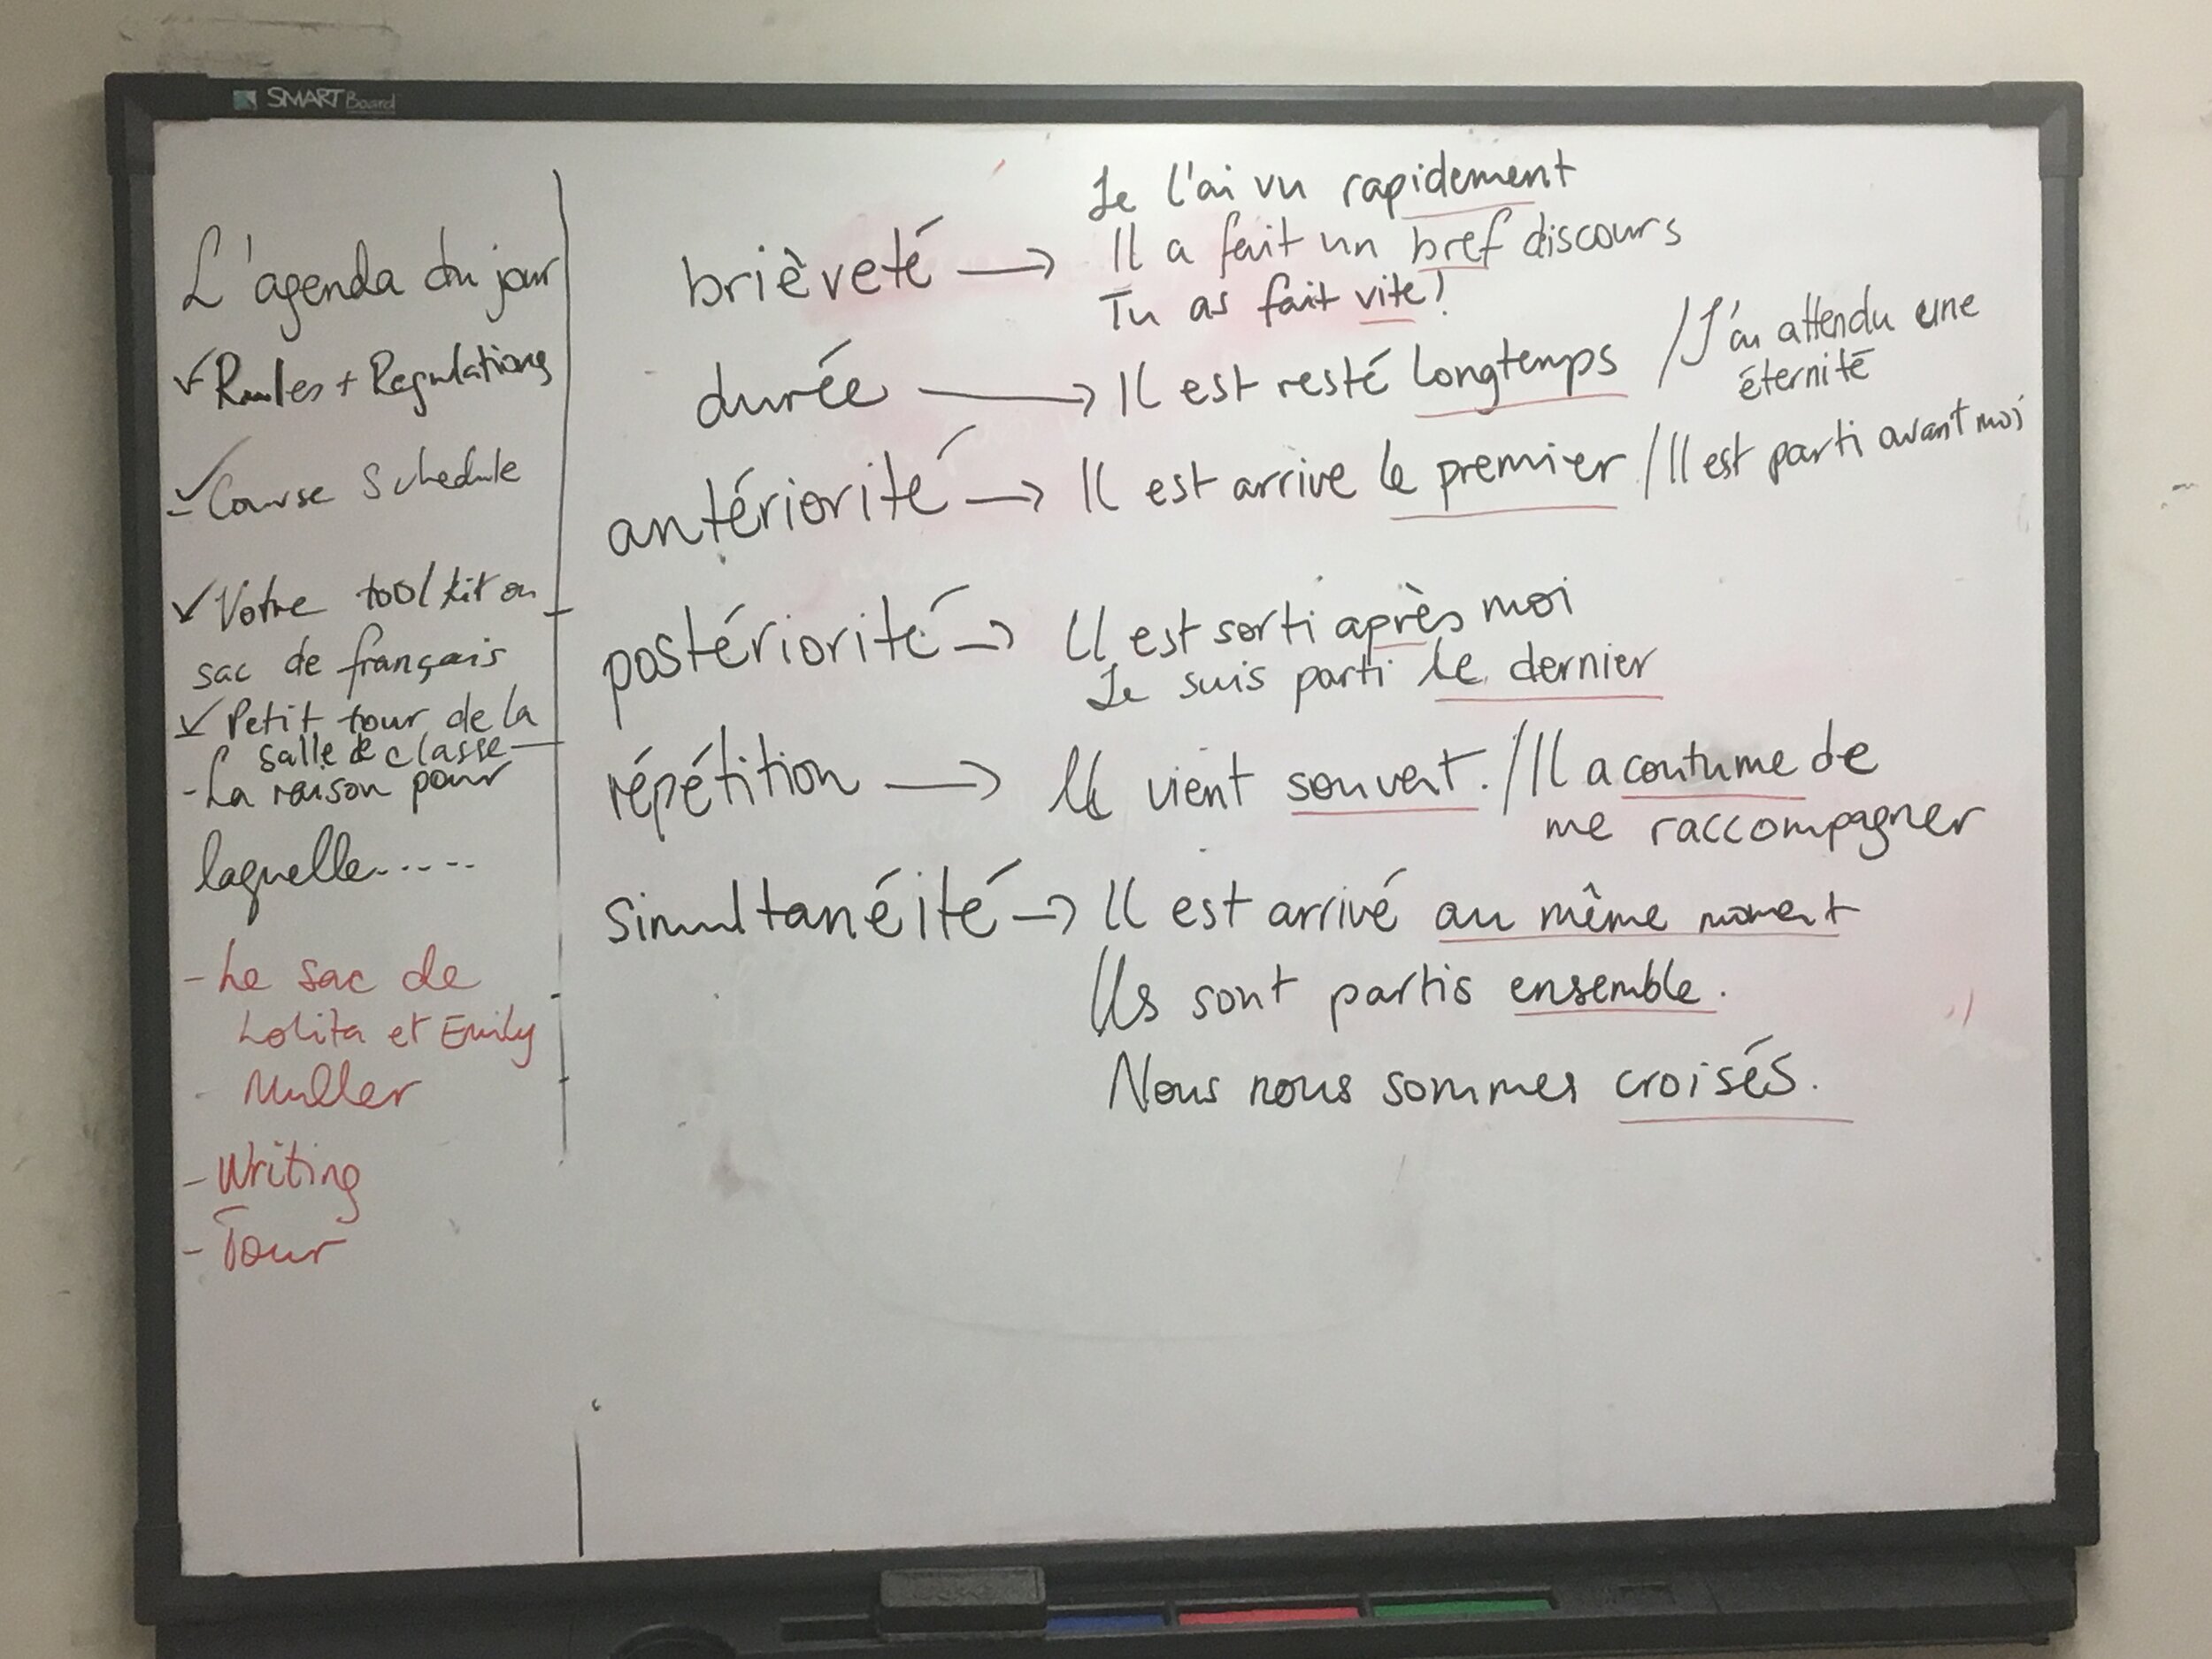 SMART Board
L'agenda du jour
✓ Rules + Regulations
✓ Course Schedule
✓ Votre toolkit ou
sac de français
✓ Petit tour de la
salle de classe
- La raison pour
laquelle.....
- Le sac de
Lolita et Emily
Muller
- Writing
- Tour
Je l'ai vu rapidement
brièveté → Il a fait un bref discours
Tu as fait vite!
durée → Il est resté longtemps / J'ai attendu une
éternité
antériorité → Il est arrive le premier / Il est parti avant moi
postériorité → Il est sorti après moi
Je suis parti le dernier
répétition → Il vient souvent. / Il a coutume de
me raccompagner
simultanéité → Il est arrivé au même moment
Ils sont partis ensemble.
Nous nous sommes croisés.